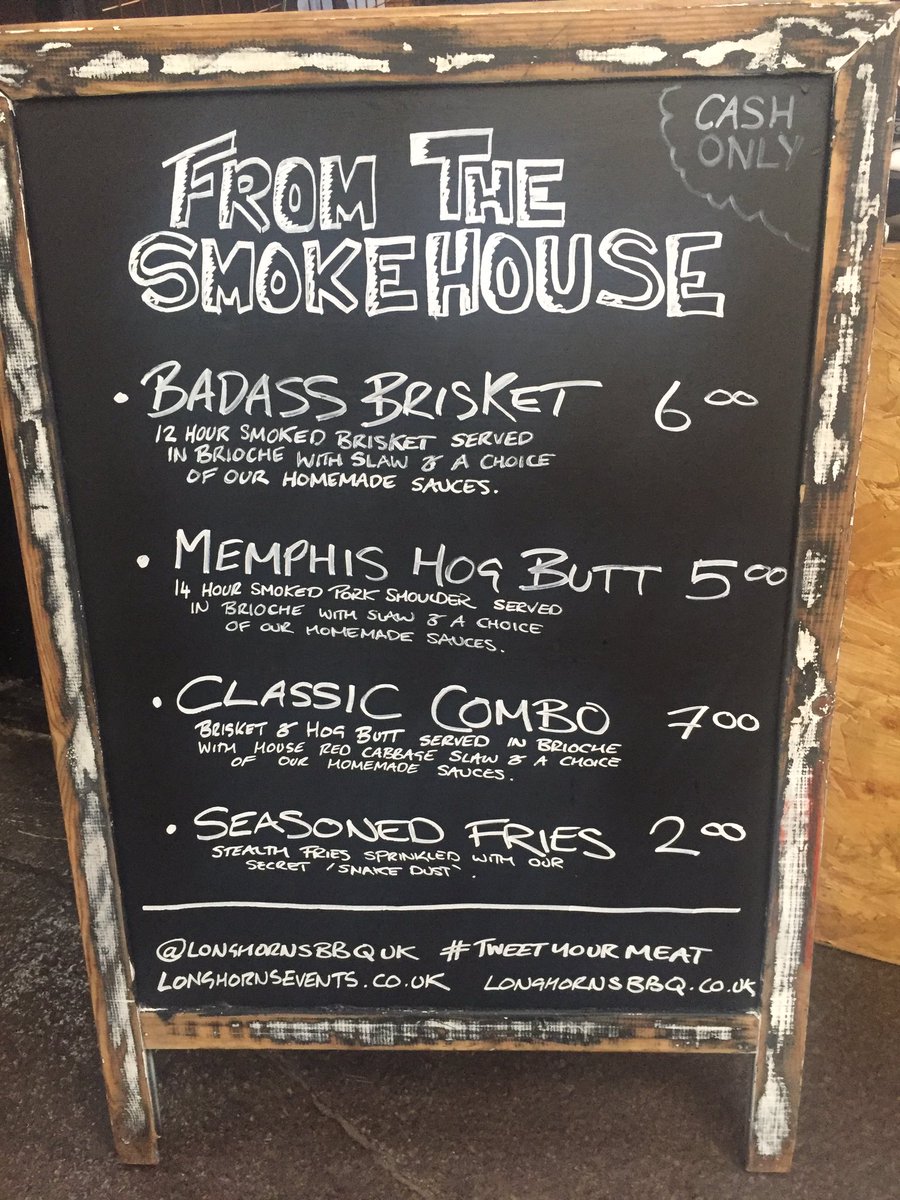 CASH
ONLY
FROM THE
SMOKEHOUSE
• BADASS BRISKET 6 00
12 HOUR SMOKED BRISKET SERVED
IN BRIOCHE WITH SLAW & A CHOICE
OF OUR HOMEMADE SAUCES.
• MEMPHIS HOG BUTT 5 00
14 HOUR SMOKED PORK SHOULDER SERVED
IN BRIOCHE WITH SLAW & A CHOICE
OF OUR HOMEMADE SAUCES.
• CLASSIC COMBO 7 00
BRISKET & HOG BUTT SERVED IN BRIOCHE
WITH HOUSE RED CABBAGE SLAW & A CHOICE
OF OUR HOMEMADE SAUCES.
• SEASONED FRIES 2 00
STEALTH FRIES SPRINKLED WITH OUR
SECRET 'SNAKE DUST'.
@LONGHORNSBBQUK #TWEETYOURMEAT
LONGHORNSEVENTS.CO.UK LONGHORNSBBQ.CO.UK